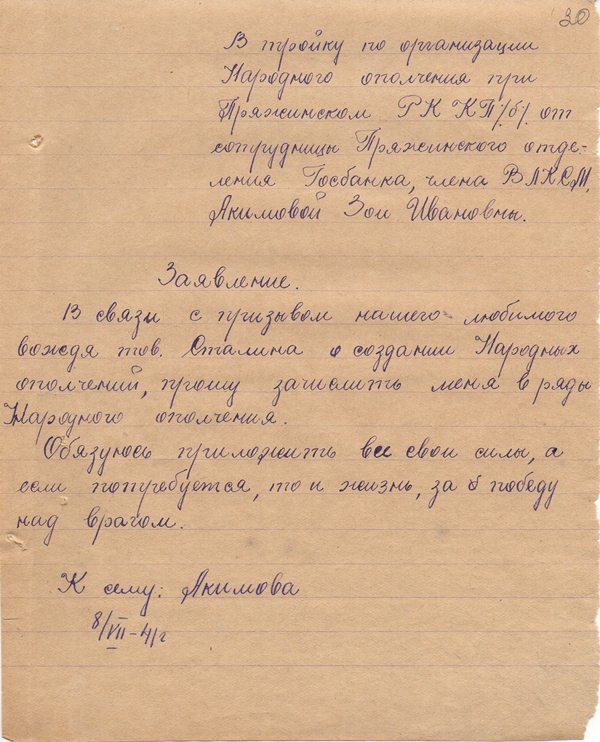 30
В тройку по организации
Народного ополчения при
Пряжинском РК КП/б/ от
сотрудницы Пряжинского отде-
ления Госбанка, члена ВЛКСМ,
Акимовой Зои Ивановны.
Заявление.
В связи с призывом нашего любимого
вождя тов. Сталина о создании Народных
ополчений, прошу зачислить меня в ряды
Народного ополчения.
Обязуюсь приложить все свои силы, а
если потребуется, то и жизнь, за победу
над врагом.
К сему: Акимова
8/VII-41г